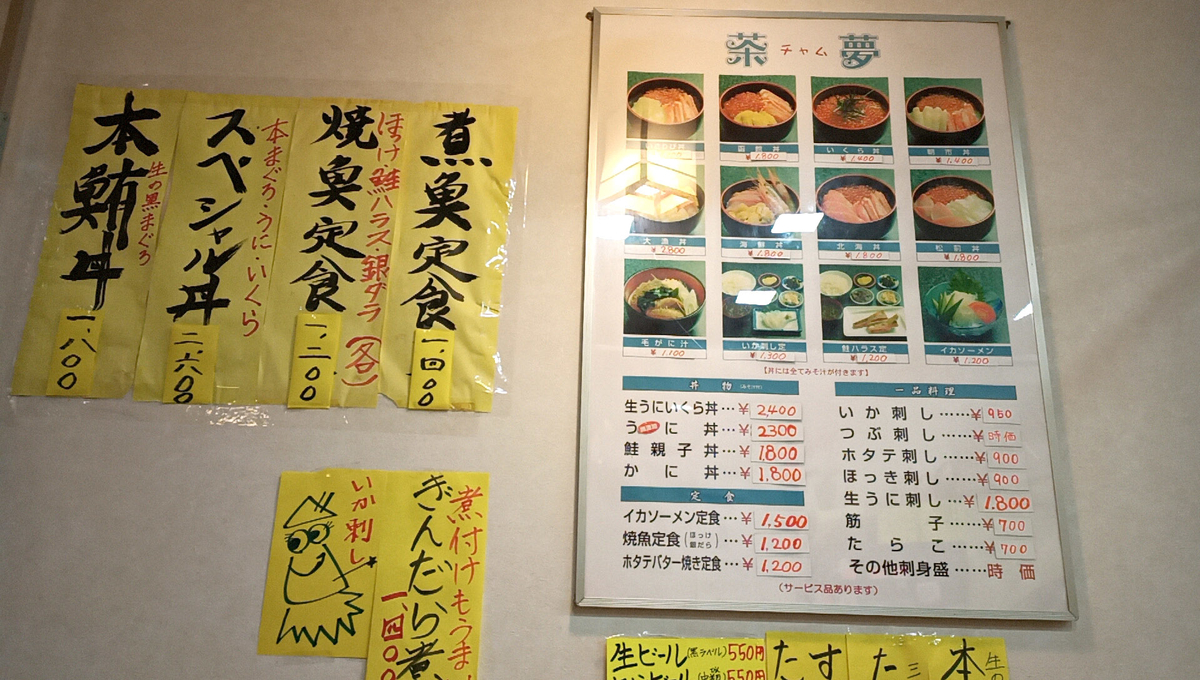 本鮪丼
生の黒まぐろ
一、八〇〇
スペシャル丼
本まぐろ・うに・いくら
二、六〇〇
焼魚定食
ほっけ・鮭ハラス銀ダラ(各)
一、二〇〇
煮魚定食
一、四〇〇
いか刺し
煮付けもうま
ぎんだら煮
一、四〇
茶夢
チャム
函館丼
¥1,800
いくら丼
¥1,400
朝市丼
¥1,400
大漁丼
¥2,800
海鮮丼
¥1,800
北海丼
¥1,800
松前丼
¥1,800
毛がに汁
¥1,100
いか刺し定
¥1,300
鮭ハラス定
¥1,200
イカソーメン
¥1,200
【丼には全てみそ汁が付きます】
丼物(みそ汁付)
生うにいくら丼…¥2,400
うに丼…¥2300
鮭親子丼…¥1,800
かに丼…¥1,800
定食
イカソーメン定食…¥1,500
焼魚定食(ほっけ 銀だら)…¥1,200
ホタテバター焼き定食…¥1,200
一品料理
いか刺し……¥950
つぶ刺し……¥時価
ホタテ刺し……¥900
ほっき刺し……¥900
生うに刺し……¥1,800
筋子……¥700
たらこ……¥700
その他刺身盛……時価
(サービス品あります)
生ビール(黒ラベル)550円
550円
たす
た三
本生の